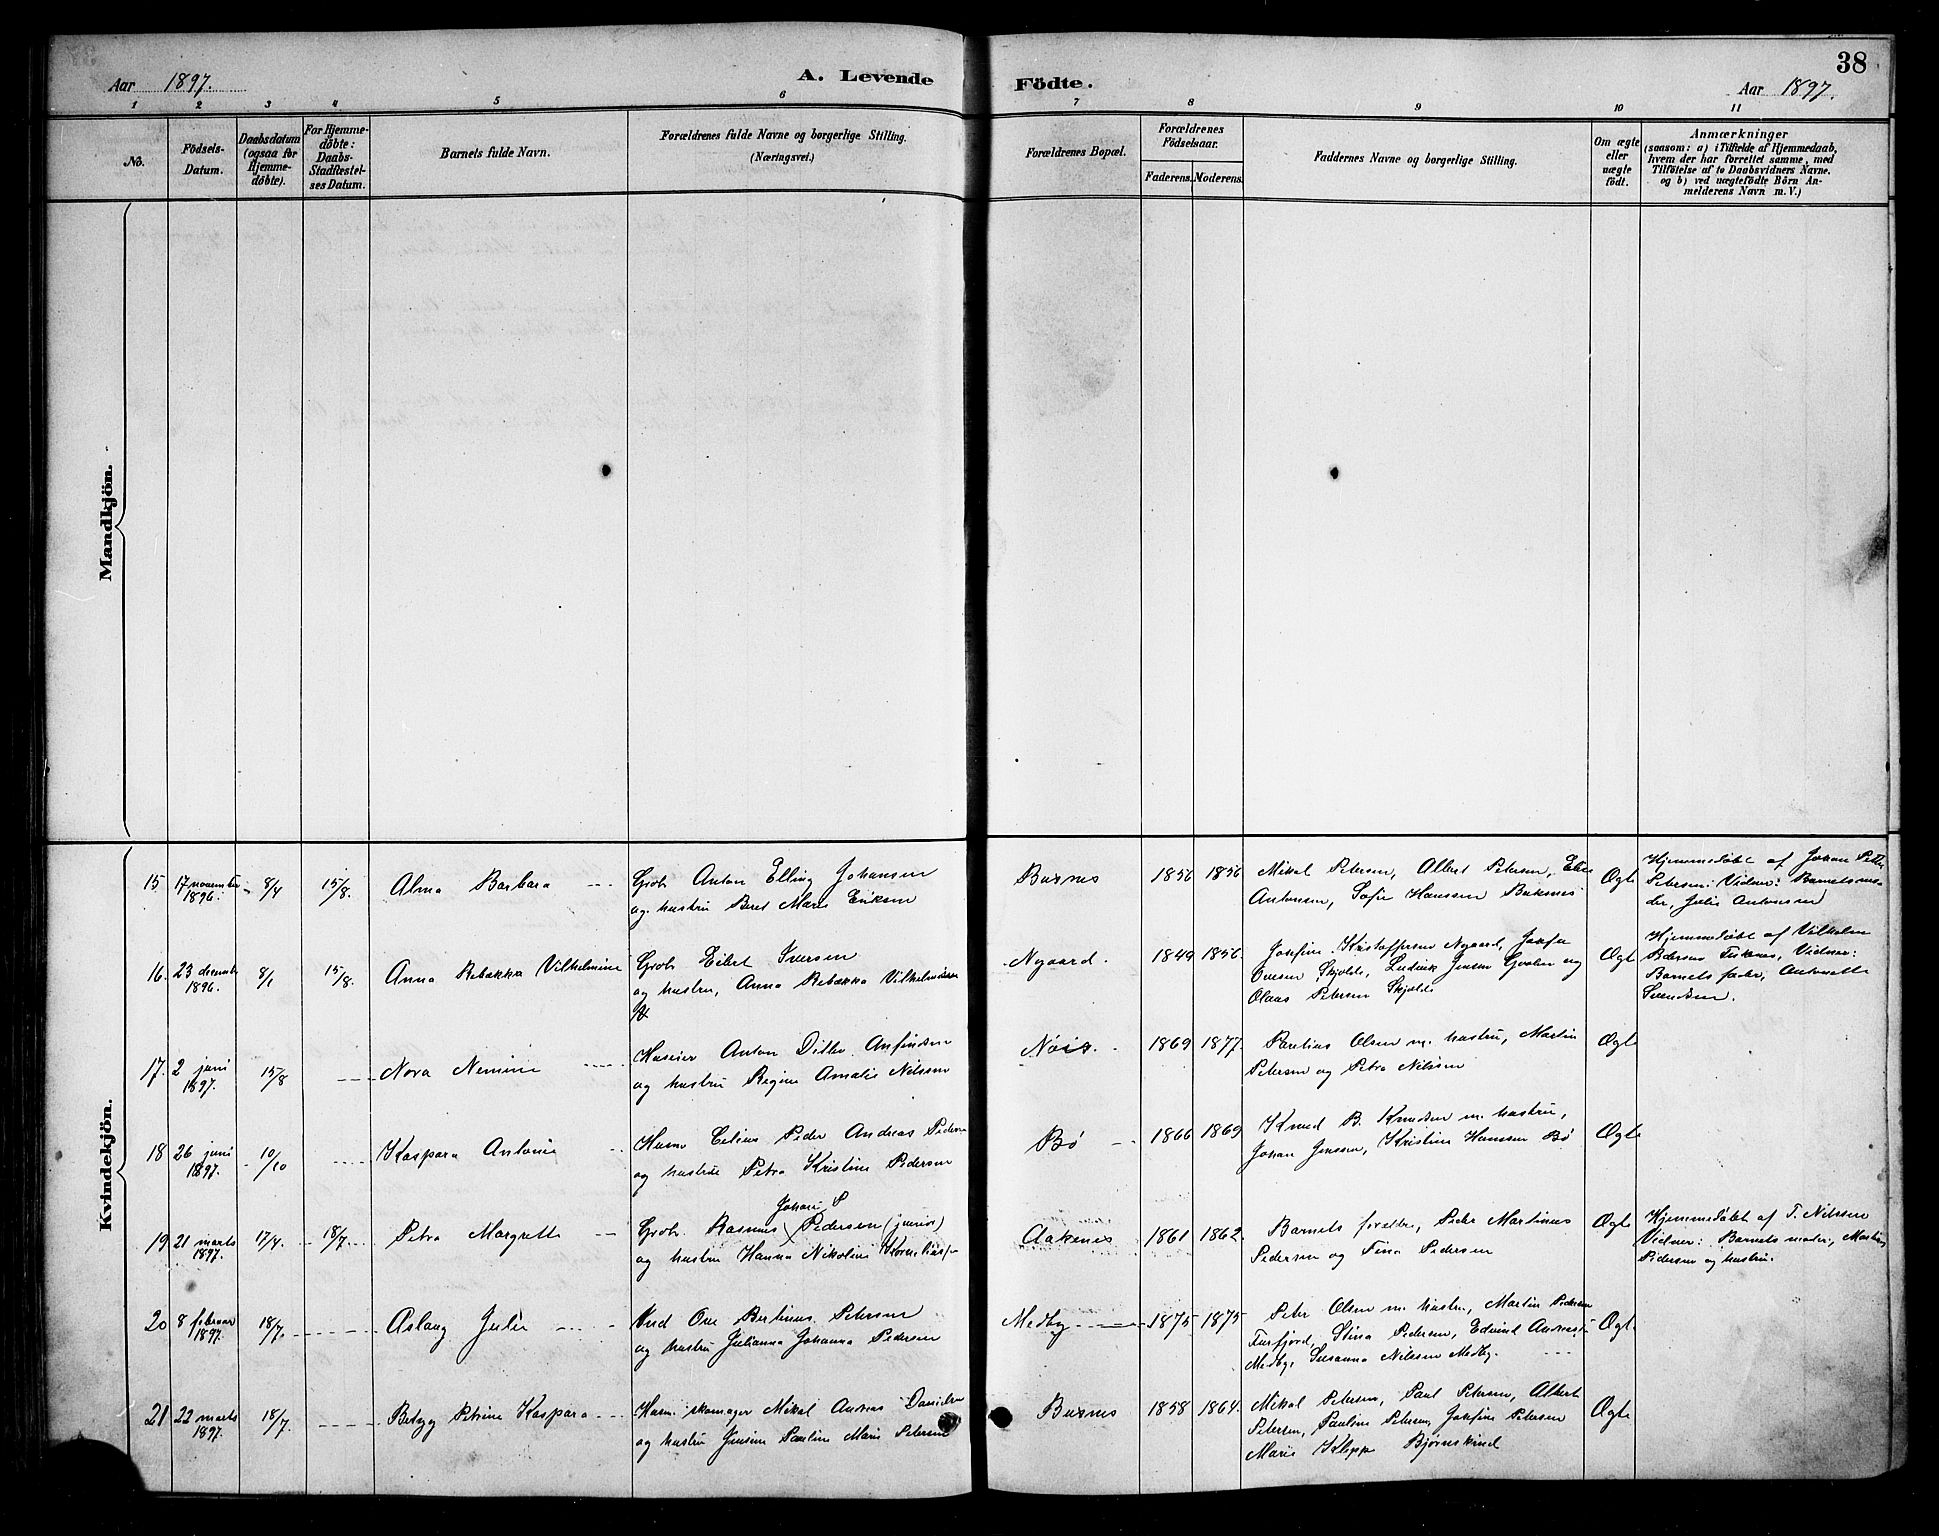 38
Aar 1897.
A. Levende Födte.
Aar 1897.
1 2 3 4 5 6 7 8 9 10 11
No.
Födsels-
Datum.
Daabsdatum
(ogsaa for
Hjemme-
døbte).
For Hjemme-
døbte:
Daabs-
Stadfæstel-
ses Datum.
Barnets fulde Navn.
Forældrenes fulde Navne og borgerlige Stilling.
(Næringsvei.)
Forældrenes Bopæl.
Forældrenes
Födselsaar.
Faderens. Moderens.
Faddernes Navne og borgerlige Stilling.
Om ægte
eller
uægte
födt.
Anmærkninger
(saasom: a) i Tilfælde af Hjemmedaab,
hvem der har forrettet samme, med
Tilföielse af to Daabsvidners Navne.
og b) ved uægtefödte Börn An-
melderens Navn m. V.)
Mandkjön.
Kvindekjön.
15 17 november
1896. 8/4 15/8. Alma Barbara
Grob Anton Elling Johansen
og hustru Beret Marie Eriksen
Buknes 1856 1856
Mikal Petersen, Albert Petersen,
Antonsen, Sofie Hanssen Buknes
Ægte
Hjemmedøbt af Johan Petter
Petersen: Vidner: Barnets mo-
der, Julie Antonsen
16. 23 december
1896. 8/1 15/8. Anna Rebakka Vilhelmine
Grob Eilert Iversen
og hustru, Anna Rebakka Vilhelmine
Nygaard. 1849 1856.
Josefine Kristoffersen Nygaard, Josefine
Iversen Skjolde, Ludvik Jensen og
Olaus Petersen Skjolde
Ægte
Hjemmedøbt af Vilhelm
Vidner:
Barnets fader, Antonette
Svendsen.
17. 2 juni
1897. 15/8 Nora Nemine
Huseier Anton Ditlev Anfindsen
og hustru Regine Amalie Nilssen
Nöis. 1869 1877.
Paretius Olsen m. hustru, Martin
Petersen og Petra Nilssen
Ægte
18 26 juni
1897. 10/10 Kaspara Antonie
Husm Edias Peder Andreas Pedersen
og hustru Petra Kristine Pedersen
Bø 1866 1869
Knud B. Knudsen m. hustru,
Johan Jenssen, Kristine Hanssen Bø
Ægte
19 21 marts
1897. 17/4. 18/7 Petra Margrette
Johan P
Grob. Rasmus Pedersen (junior)
og hustru Hanna Nikoline Korneliusd
Aakenes 1861 1862.
Barnets forældre, Peder Martinus
Pedersen og Fina Pedersen
Ægte
Hjemmedøbt af T. Nilssen
Vidner: Barnets moder, Martin
Pedersen og hustru.
20 8 februar
1897. 18/7. Aslaug Julie
Ind Ove Bertinus Petersen
og hustru Julianna Johanna Pedersen
Medby 1875 1875
Peter Olsen m. hustru, Martin Pedersen
Furfjord, Stina Pedersen, Edvind Andreas
Medby, Susanna Nilssen Medby.
Ægte
21 22 marts
1897. 18/7. Betzy Petrine Kaspara
Husm skomager Mikal Andreas Danielsen
og hustru Jensine Pauline Marie Petersen
Buknes 1858 1864.
Mikal Petersen, Paul Petersen, Albert
Petersen, Pauline Petersen, Josefine Petersen
Marie Kleppe Bjørnskind
Ægte